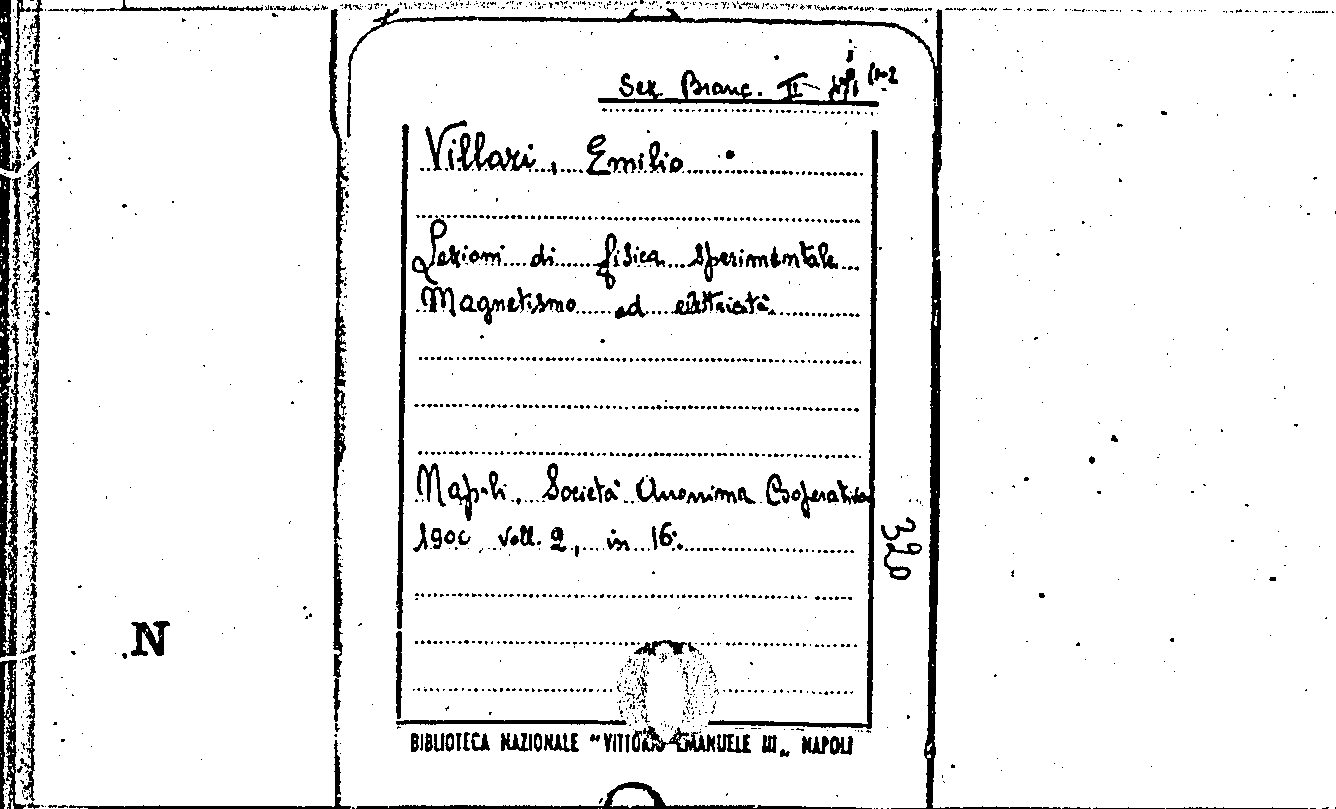 Sez. Branc. II
Villari, Emilio
Lezioni di fisica sperimentale
Magnetismo ed elettricità.
Napoli, Società Anonima Cooperativa
1900 voll. 2, in 16°.
320
N
BIBLIOTECA NAZIONALE "VITTORIO EMANUELE III„ NAPOLI